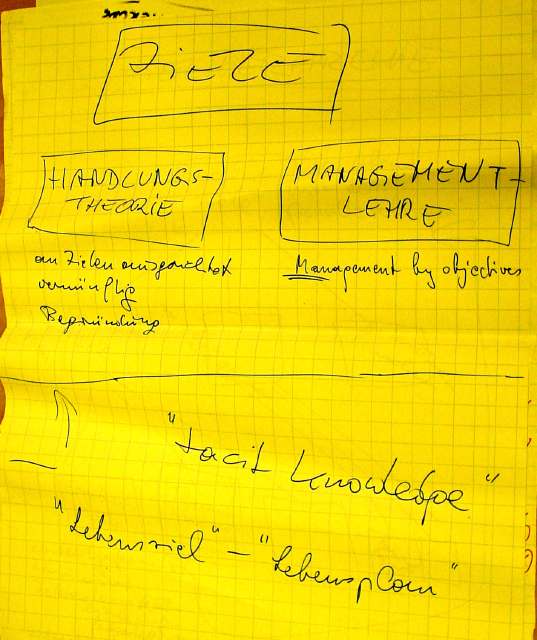 ZIELE
HANDLUNGS-
THEORIE
MANAGEMENT-
LEHRE
an Zielen ausgerichtet
vernünftig
Begründung
Management by objectives
"tacit knowledge"
"Lebensziel" – "Lebensplan"